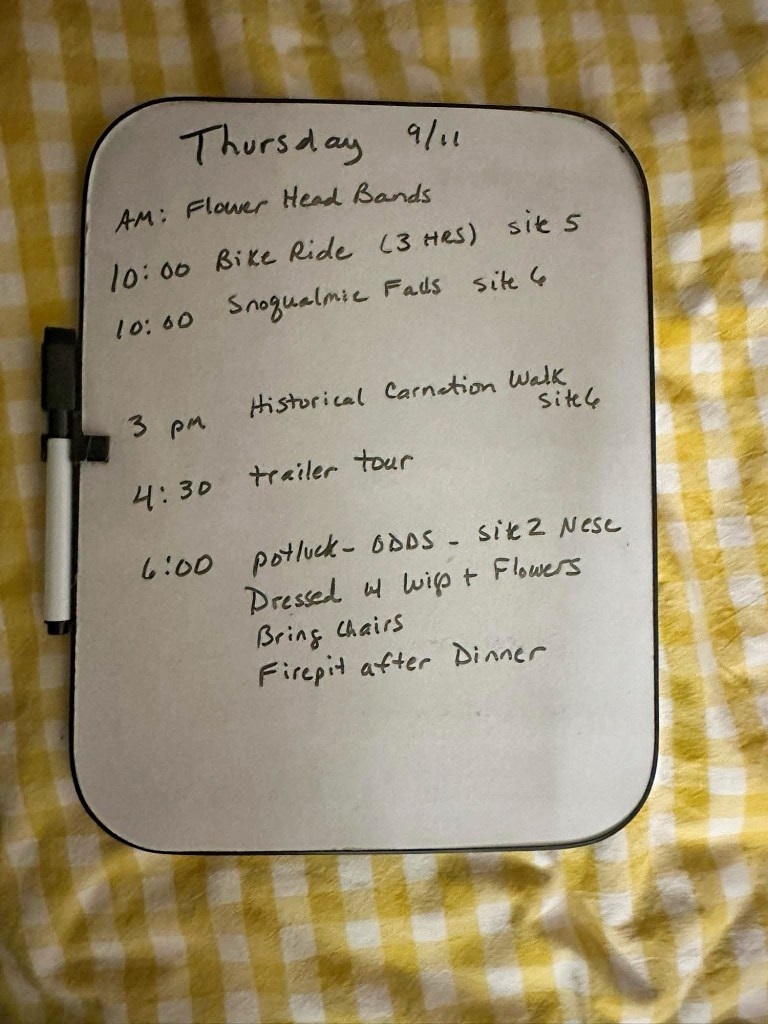 Thursday 9/11
AM: Flower Head Bands
10:00 Bike Ride (3 HRS) site 5
10:00 Snoqualmie Falls site 6
3 pm Historical Carnation Walk
site 6
4:30 trailer tour
6:00 potluck - ODDS - site 2 Nese
Dressed w/ Wip + Flowers
Bring Chairs
Firepit after Dinner